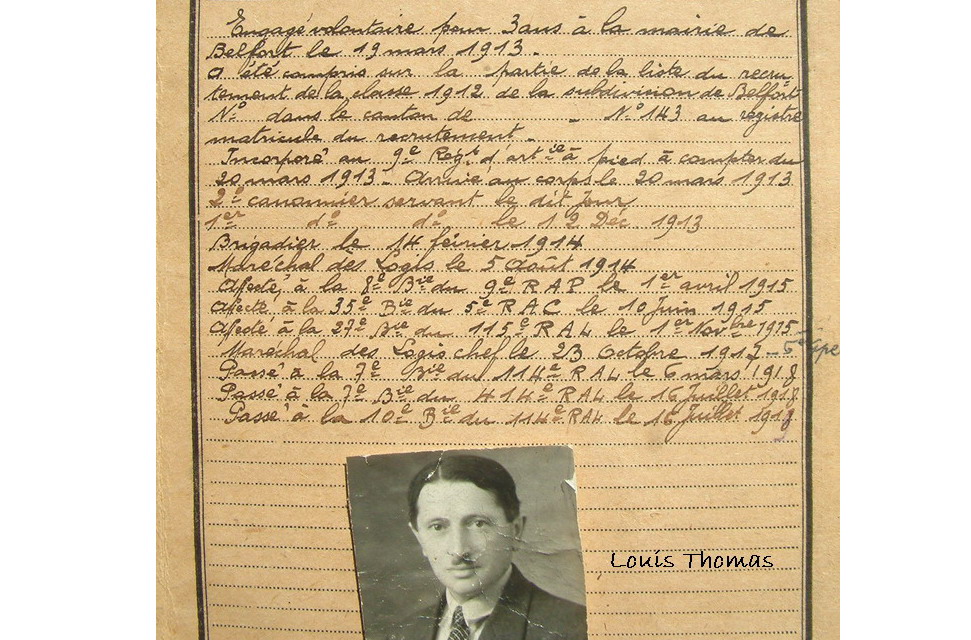 Engagé volontaire pour 3 ans à la mairie de
Belfort le 19 mars 1913.
a été compris sur la partie de la liste du recru-
tement de la classe 1912 de la subdivision de Belfort
N° dans le canton de - N° 143 au registre
matricule du recrutement.
Incorporé au 9e Régt d'artie à pied à compter du
20 mars 1913. Arrivé au corps le 20 mars 1913
2e canonnier servant le dit jour
1er d° d° le 12 Déc. 1913
Brigadier le 14 février 1914
Maréchal des Logis le 5 Août 1914
Afecté à la 8e Bie du 9e RAP le 1er avril 1915
Afecté à la 35e Bie du 5e RAC le 10 Juin 1915
Afecté à la 27e Bie du 115e RAL le 1er Novbre 1915
Maréchal des Logis chef le 23 Octobre 1917
Passé à la 7e Bie du 114e RAL le 6 mars 1918
Passé à la 7e Bie du 414e RAL le 16 Juillet 1918
Passé à la 10e Bie du 114e RAL le 16 Juillet 1919
Louis Thomas